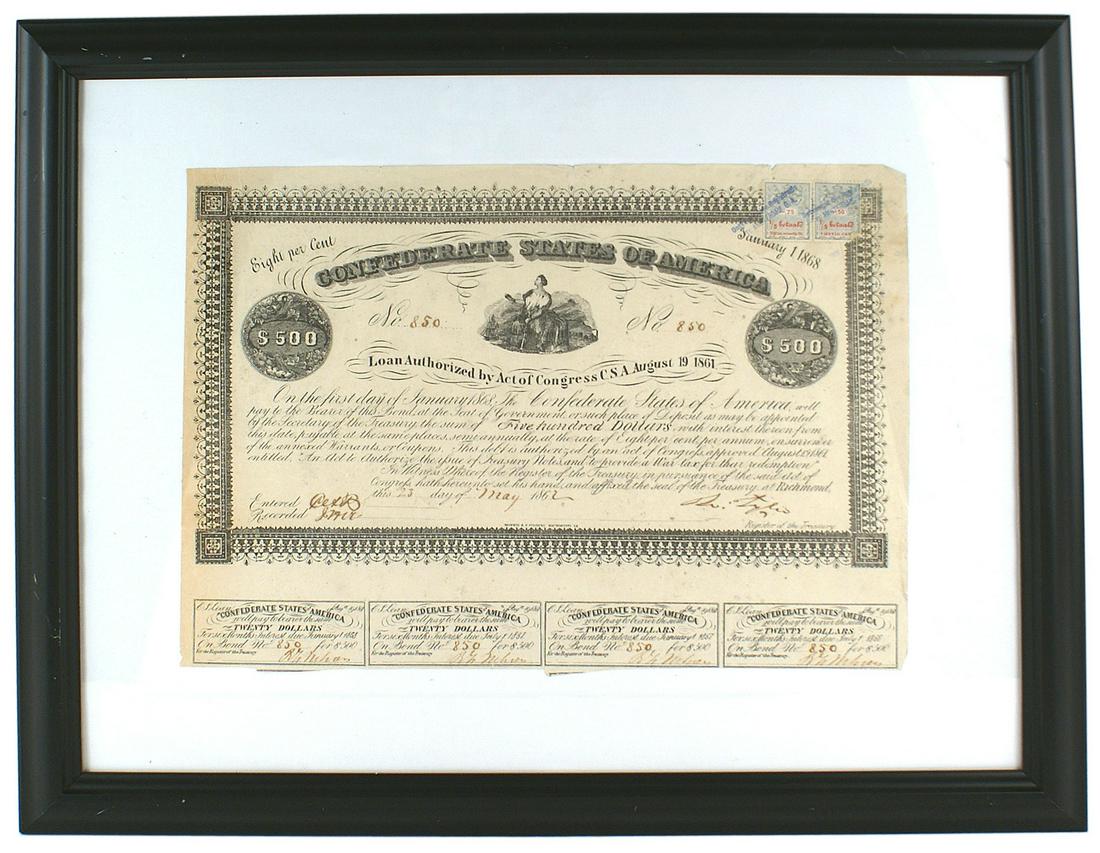 Eight per Cent
January 1 1868
75
50
CONFEDERATE STATES OF AMERICA
No. 850
No 850
$500
$500
Loan Authorized by Act of Congress C.S.A. August 19 1861.
On the first day of January 1868, The Confederate States of America, will
pay to the Bearer of this Bond, at the Seat of Government, or such place of Deposit as may be appointed
by the Secretary of the Treasury, the sum of Five hundred Dollars, with interest thereon from
this date, payable at the same places, semi-annually, at the rate of Eight per cent per annum, on surrender
of the annexed Warrants, or Coupons. This debt is authorized by an act of Congress approved August 19 1861
entitled, "An Act to Authorize the issue of Treasury Notes, and to provide a War tax for their redemption"
In Witness Whereof the Register of the Treasury, in pursuance of the said Act of
Congress, hath hereunto set his hand, and affixed the seal of the Treasury, at Richmond,
this 23 day of May 1862
Entered
Recorded
Register of the Treasury
C.S. Loan
CONFEDERATE STATES AMERICA
will pay to bearer the sum
TWENTY DOLLARS
For six Months Interest due January 1
On Bond No 850 for $500
for the Register of the Treasury
C.S. Loan
CONFEDERATE STATES AMERICA
will pay to bearer the sum
TWENTY DOLLARS
For six Months Interest due July 1 1867
On Bond No 850 for $500
for the Register of the Treasury
C.S. Loan
CONFEDERATE STATES AMERICA
will pay to bearer the sum
TWENTY DOLLARS
For six Months Interest due January 1 1867
On Bond No 850 for $500
for the Register of the Treasury
C.S. Loan
CONFEDERATE STATES AMERICA
will pay to bearer the sum
TWENTY DOLLARS
For six Months Interest due July 1
On Bond No 850 for $500
for the Register of the Treasury